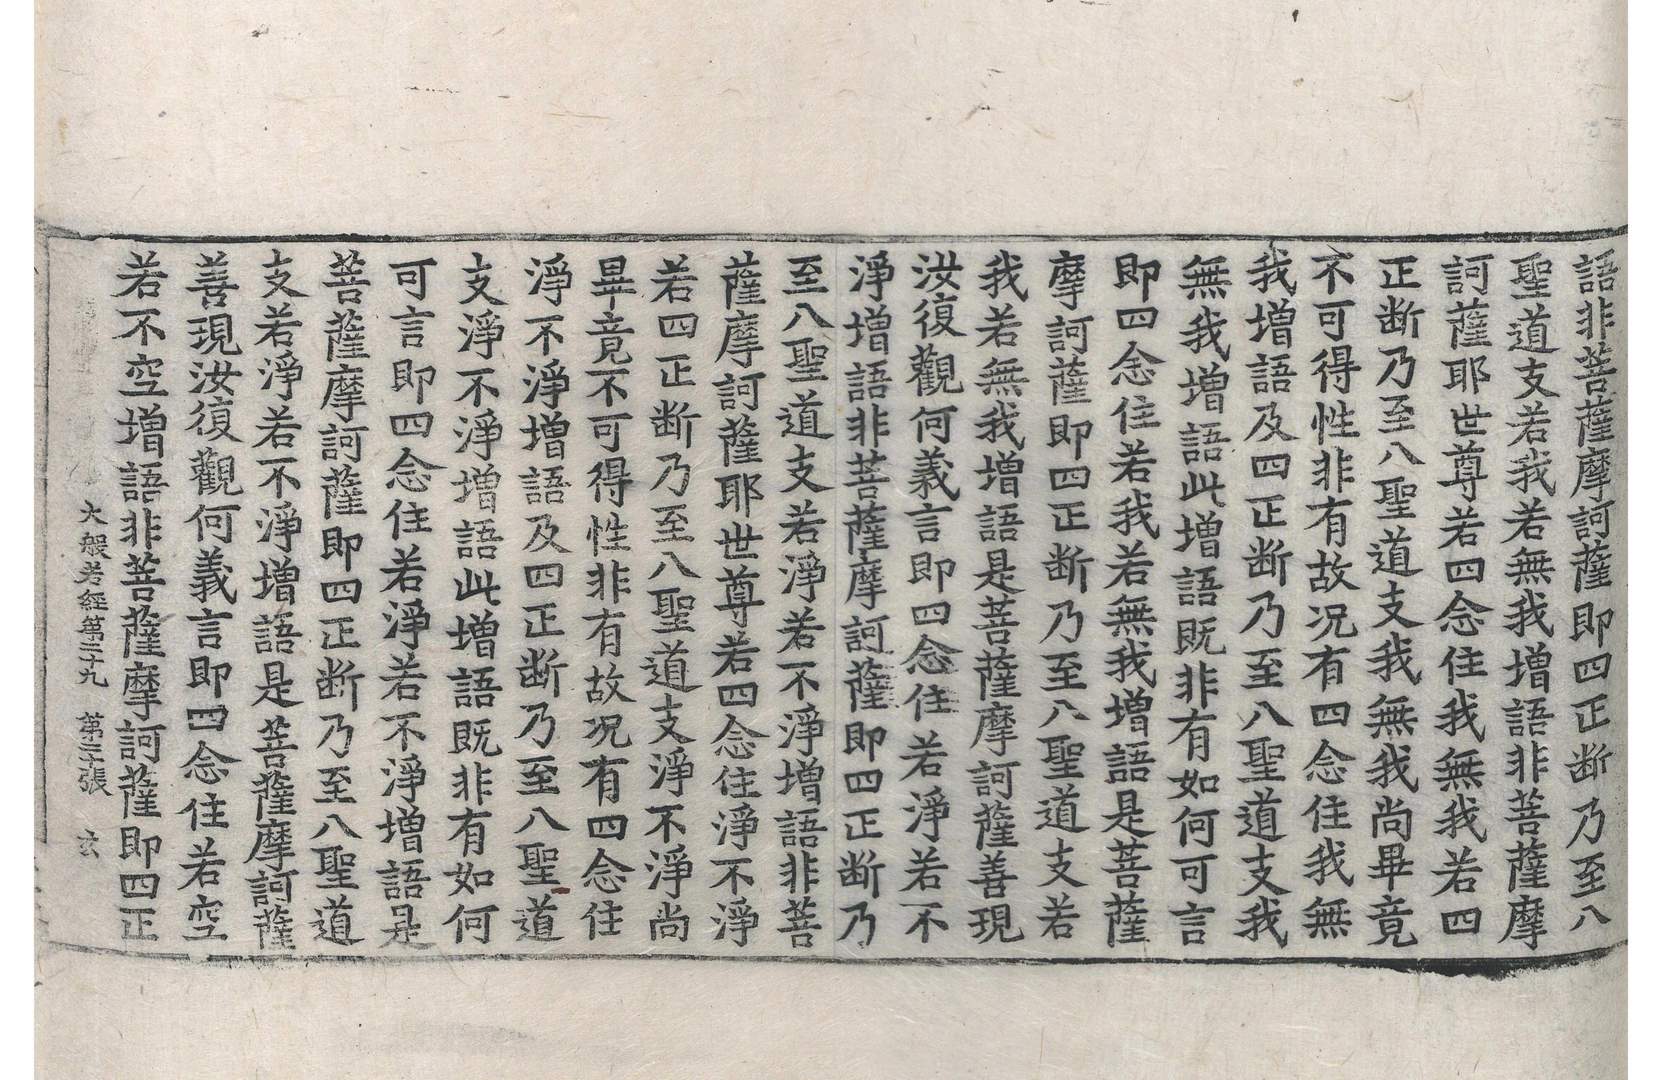 語非菩薩摩訶薩即四正断乃至八
聖道支若我若無我增語非菩薩摩
訶薩耶世尊若四念住我無我若四
正断乃至八聖道支我無我尚畢竟
不可得性非有故况有四念住我無
我增語及四正断乃至八聖道支我
無我增語此增語既非有如何可言
即四念住若我若無我增語是菩薩
摩訶薩即四正断乃至八聖道支若
我若無我增語是菩薩摩訶薩善現
汝復觀何義言即四念住若淨若不
淨增語非菩薩摩訶薩即四正断乃
至八聖道支若淨若不淨增語非菩
薩摩訶薩耶世尊若四念住淨不淨
若四正断乃至八聖道支淨不淨尚
畢竟不可得性非有故况有四念住
淨不淨增語及四正断乃至八聖道
支淨不淨增語此增語既非有如何
可言即四念住若淨若不淨增語是
菩薩摩訶薩即四正断乃至八聖道
支若淨若不淨增語是菩薩摩訶薩
善現汝復觀何義言即四念住若空
若不空增語非菩薩摩訶薩即四正
大般若經第二十九 第二十張 玄